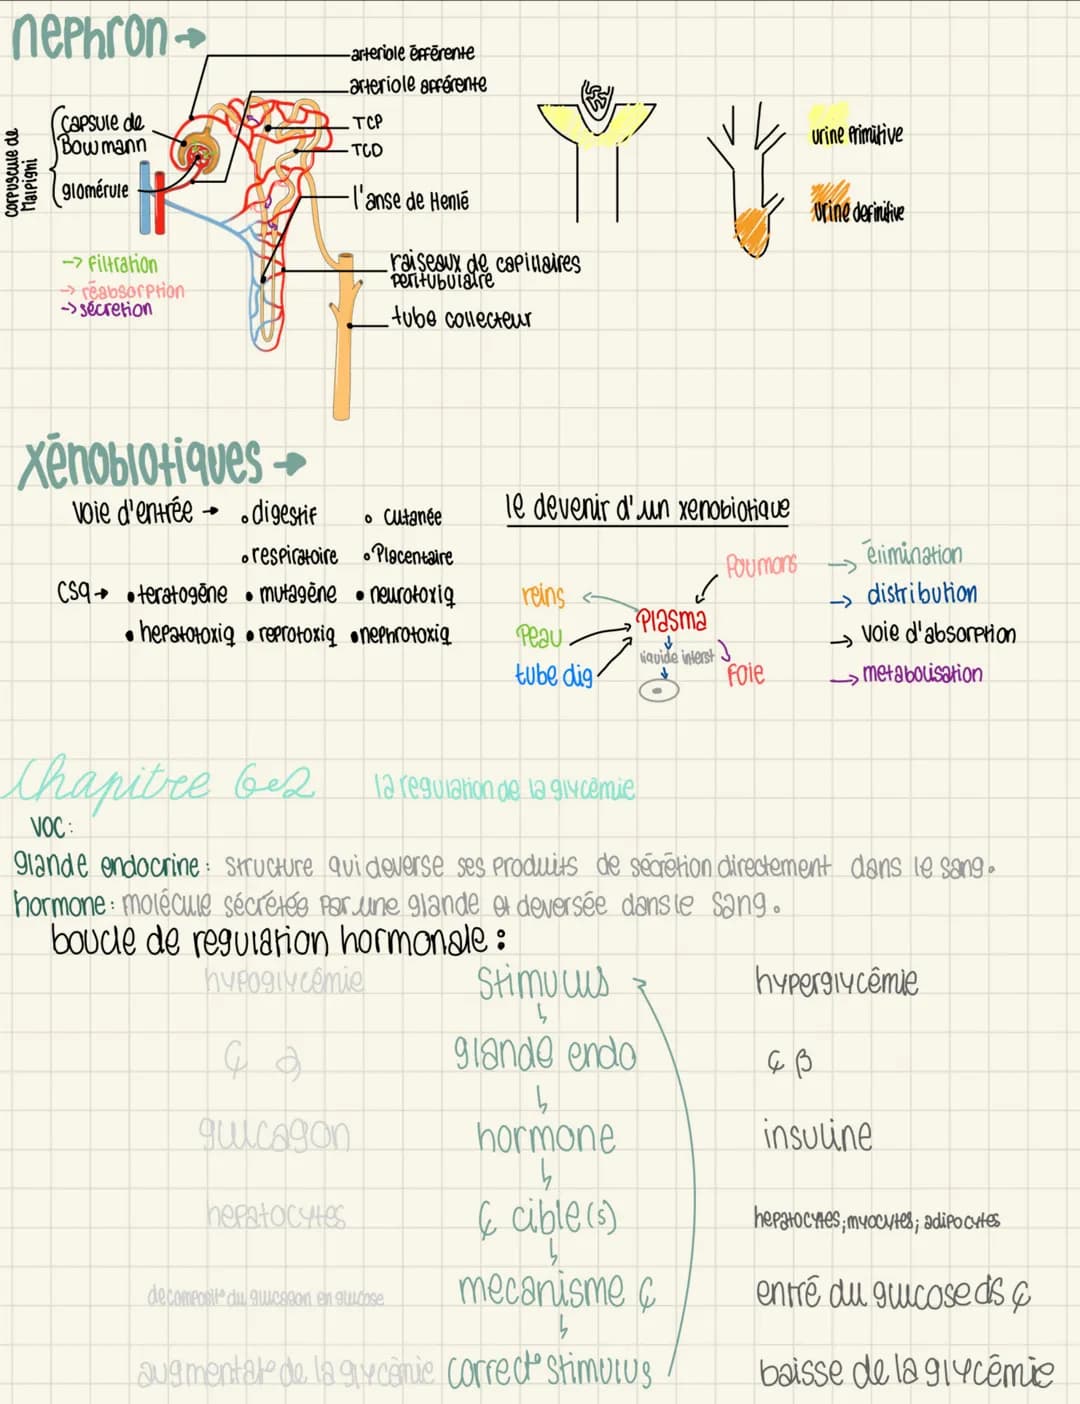 nephron →
artériole éfférente
artériole afférente
capsule de
Bowmann
TCP
TCD
corpuscule de
Malpighi
glomérule
l'anse de Henlé
urine primitive
urine definitive
-> filtration
-> réabsorption
-> sécretion
raiseaux de capillaires
peritubulaire
tube collecteur
xénobiotiques →
voie d'entrée → • digestif • cutanée
• respiratoire • Placentaire
csq → • teratogène • mutagène • neurotoxiq
• hepatotoxiq • reprotoxiq • nephrotoxiq
le devenir d'un xenobiotique
Poumons
reins
Plasma
Peau
liquide interst
tube dig
Foie
→ élimination
→ distribution
→ voie d'absorption
→ metabolisation
Chapitre 6e2 la regulation de la glycémie
voc:
glande endocrine: structure qui deverse ses produits de sécrétion directement dans le sang.
hormone: molécule sécrétée par une glande et deversée dans le sang.
boucle de regulation hormonale:
hypoglycémie stimulus hyperglycémie
¢ α glande endo ¢ β
glucagon hormone insuline
hepatocytes ¢ cible(s) hepatocytes; myocytes; adipocytes
decomposit° du glucagon en glucose mecanisme ¢ entré du glucose ds ¢
augmentat° de la glycémie correct° stimulus baisse de la glycémie